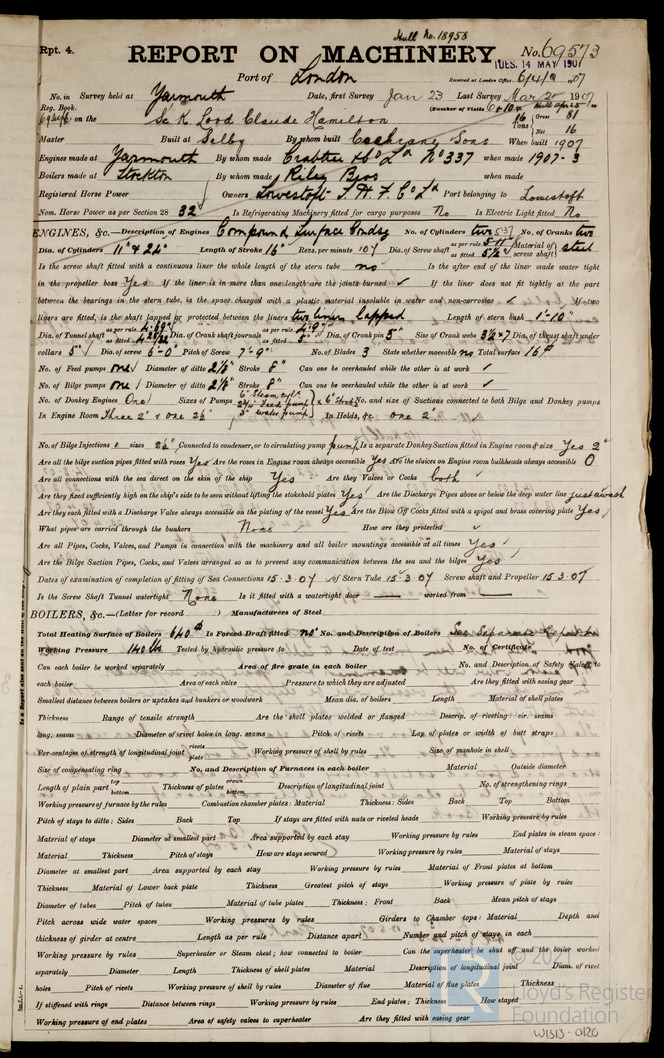 Hull No. 18953
Rpt. 4.
REPORT ON MACHINERY No. 69573
TUES. 14 MAY 1907
Port of London
Received at London Office
No. in Survey held at Yarmouth Date, first Survey Jan 23 Last Survey Mar 1907
Reg. Book. (Number of Visits
on the Sc K Lord Claude Hamilton Tons Gross 81 Net 16
Master Built at Selby By whom built Cochrane & Sons When built 1907
Engines made at Yarmouth By whom made Crabtree & Co Ld No 337 when made 1907-3
Boilers made at Stockton By whom made Riley Bros when made
Registered Horse Power Owners Lowestoft S. H. F. Co Ld Port belonging to Lowestoft
Nom. Horse Power as per Section 28 32 Is Refrigerating Machinery fitted for cargo purposes No Is Electric Light fitted No
ENGINES, &c.—Description of Engines Compound Surface Condsg No. of Cylinders two No. of Cranks two
Dia. of Cylinders 11" & 24" Length of Stroke 16" Revs. per minute 107 Dia. of Screw shaft as per rule 5.11 as fitted 5½" Material of screw shaft steel
Is the screw shaft fitted with a continuous liner the whole length of the stern tube no Is the after end of the liner made water tight
in the propeller boss Yes If the liner is in more than one length are the joints burned ✓ If the liner does not fit tightly at the part
between the bearings in the stern tube, is the space charged with a plastic material insoluble in water and non-corrosive ✓ If two
liners are fitted, is the shaft lapped or protected between the liners two liners lapped Length of stern bush 1'-10"
Dia. of Tunnel shaft as per rule 4.69" as fitted Dia. of Crank shaft journals as per rule 4.9" as fitted 5" Dia. of Crank pin 5" Size of Crank webs 3½ x 7 Dia. of thrust shaft under
collars 5" Dia. of screw 6-0" Pitch of Screw 7'-9" No. of Blades 3 State whether moveable no Total surface 16 ft
No. of Feed pumps one Diameter of ditto 2⅛" Stroke 8" Can one be overhauled while the other is at work ✓
No. of Bilge pumps one Diameter of ditto 2⅛" Stroke 8" Can one be overhauled while the other is at work ✓
No. of Donkey Engines One Sizes of Pumps No. and size of Suctions connected to both Bilge and Donkey pumps
In Engine Room Three 2" & one 2½" In Holds, &c. one 2"
No. of Bilge Injections 1 sizes 2½" Connected to condenser, or to circulating pump pump Is a separate Donkey Suction fitted in Engine room & size Yes 2"
Are all the bilge suction pipes fitted with roses Yes Are the roses in Engine room always accessible Yes Are the sluices on Engine room bulkheads always accessible 0
Are all connections with the sea direct on the skin of the ship Yes Are they Valves or Cocks both
Are they fixed sufficiently high on the ship's side to be seen without lifting the stokehold plates Yes Are the Discharge Pipes above or below the deep water line just awash
Are they each fitted with a Discharge Valve always accessible on the plating of the vessel Yes Are the Blow Off Cocks fitted with a spigot and brass covering plate Yes
What pipes are carried through the bunkers None How are they protected ✓
Are all Pipes, Cocks, Valves, and Pumps in connection with the machinery and all boiler mountings accessible at all times Yes
Are the Bilge Suction Pipes, Cocks, and Valves arranged so as to prevent any communication between the sea and the bilges Yes
Dates of examination of completion of fitting of Sea Connections 15.3.07 of Stern Tube 15.3.07 Screw shaft and Propeller 15.3.07
Is the Screw Shaft Tunnel watertight None Is it fitted with a watertight door — worked from —
BOILERS, &c.—(Letter for record ) Manufacturers of Steel
Total Heating Surface of Boilers 640 Is Forced Draft fitted no No. and Description of Boilers See Separate Report
Working Pressure 140 lb Tested by hydraulic pressure to Date of test No. of Certificate
Can each boiler be worked separately Area of fire grate in each boiler No. and Description of Safety Valves to
each boiler Area of each valve Pressure to which they are adjusted Are they fitted with easing gear
Smallest distance between boilers or uptakes and bunkers or woodwork Mean dia. of boilers Length Material of shell plates
Thickness Range of tensile strength Are the shell plates welded or flanged Descrip. of riveting: cir. seams
long. seams Diameter of rivet holes in long. seams Pitch of rivets Lap of plates or width of butt straps
Per centages of strength of longitudinal joint rivets plate Working pressure of shell by rules Size of manhole in shell
Size of compensating ring No. and Description of Furnaces in each boiler Material Outside diameter
Length of plain part top bottom Thickness of plates crown bottom Description of longitudinal joint No. of strengthening rings
Working pressure of furnace by the rules Combustion chamber plates: Material Thickness: Sides Back Top Bottom
Pitch of stays to ditto: Sides Back Top If stays are fitted with nuts or riveted heads Working pressure by rules
Material of stays Diameter at smallest part Area supported by each stay Working pressure by rules End plates in steam space:
Material Thickness Pitch of stays How are stays secured Working pressure by rules Material of stays
Diameter at smallest part Area supported by each stay Working pressure by rules Material of Front plates at bottom
Thickness Material of Lower back plate Thickness Greatest pitch of stays Working pressure of plate by rules
Diameter of tubes Pitch of tubes Material of tube plates Thickness: Front Back Mean pitch of stays
Pitch across wide water spaces Working pressures by rules Girders to Chamber tops: Material Depth and
thickness of girder at centre Length as per rule Distance apart Number and pitch of stays in each
Working pressure by rules Superheater or Steam chest; how connected to boiler Can the superheater be shut off and the boiler worked
separately Diameter Length Thickness of shell plates Material Description of longitudinal joint Diam. of rivet
holes Pitch of rivets Working pressure of shell by rules Diameter of flue Material of flue plates Thickness
If stiffened with rings Distance between rings Working pressure by rules End plates: Thickness How stayed
Working pressure of end plates Area of safety valves to superheater Are they fitted with easing gear
© 2021
Lloyd's Register
Foundation
W1513-0120